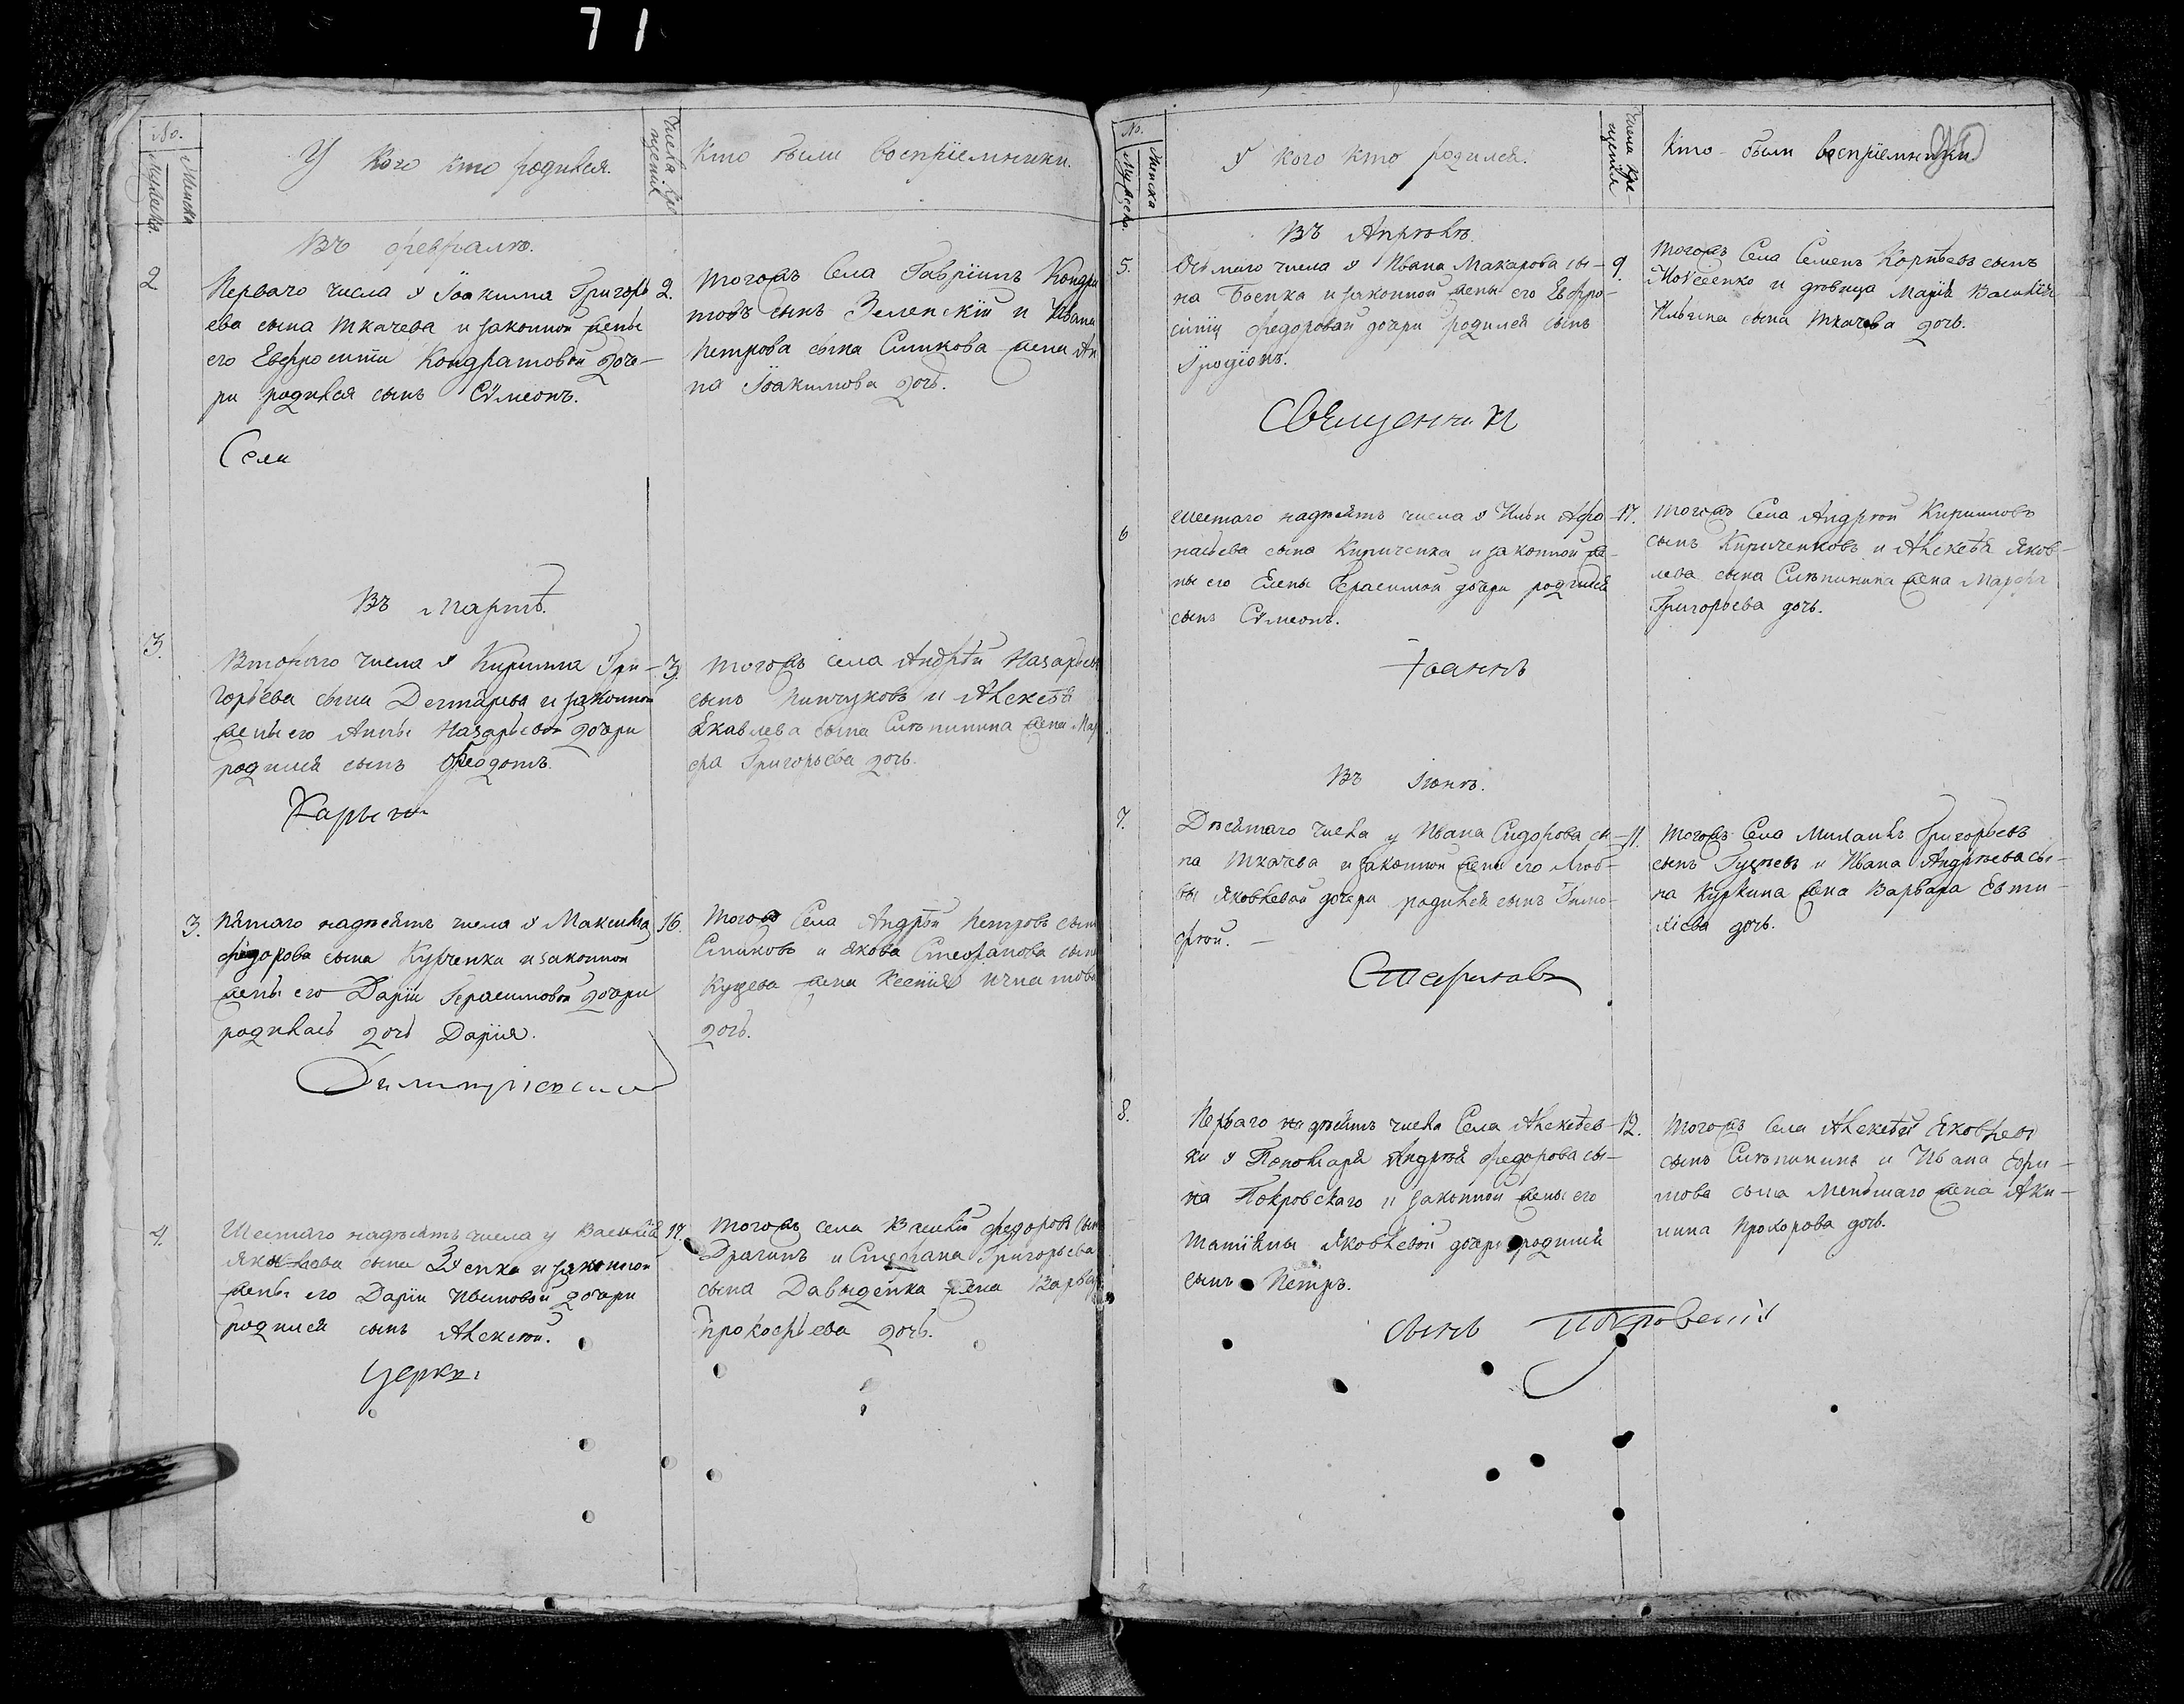 71
No.
Мужеска.
Женска
У кого кто родился.
Числа Кре
щения
Кто были воспріемники.
Въ Февралѣ.
2
Перваго числа у Іоакима Григорь
ева сына Ткачева и законной жены
его Евфросиніи Кондратовой доче-
ри родился сынъ Сѵмеонъ.
2.
Тогожъ Села Гавріилъ Кондра
товъ сынъ Зеленскій и Ивана
Петрова сына Сликова жена Ан
на Іоакимова дочь.
Села
Въ Мартѣ.
3.
Втораго числа у Кирилла Гри-
горьева сына Дегтярева и законной
жены его Анны Назарьевой дочери
родился сынъ Феодотъ.
3.
Тогожъ села Андрѣй Назарьевъ
сынъ Пинчуковъ и Алексѣя
Яковлева сына Слѣпинина жена Мар
фа Григорьева дочь.
3.
Пятаго надесять числа у Максима
Федорова сына Курченка и законной
жены его Даріи Герасимовой дочери
родилась дочь Дарія.
16.
Тогожъ Села Андрѣй Петровъ сынъ
Сликовъ и Якова Стефанова сына
Куцева жена Ксенія Игнатова
дочь.
Димитріевски
4.
Шестаго надесять числа у Василія
Яковлева сына Зуенка и законной
жены его Даріи Ивановой дочери
родился сынъ Алексѣй.
17.
Тогожъ села Василій Федоровъ сынъ
Драгинъ и Степана Григорьева
сына Давыденка жена Варвара
Прокофьева дочь.
Церкви
No.
Мужеска.
Женска
У кого кто родился.
Числа Кре
щенія
Кто были воспріемники.
Въ Апрѣлѣ.
5.
Осьмаго числа у Ивана Макарова сы-
на Боенка и законной жены его Евфро-
синіи Федоровой дочери родился сынъ
Іродіонъ.
9.
Тогожъ Села Семенъ Корнѣевъ сынъ
Мовсеенко и дѣвица Марія Василія
Ильина сына Ткачева дочь.
Священникъ
6
Шестаго надесять числа у Ильи Афо
насьева сына Кириченка и законной же-
ны его Елены Герасимой дочери родился
сынъ Сѵмеонъ.
17.
Тогожъ Села Андрѣй Кирилловъ
сынъ Кириченковъ и Алексѣя Яков-
лева сына Слѣпинина жена Марфа
Григорьева дочь.
Іоаннъ
Въ Іюнѣ.
7.
Десятаго числа у Ивана Сидорова сы-
на Ткачева и законной жены его Люб-
вы Яковлевой дочери родился сынъ Тимо-
фѣй.
11.
Тогожъ Села Михаилъ Григорьевъ
сынъ Гуцневъ и Ивана Андрѣева сы-
на Куркина жена Варвара Евти-
хіева дочь.
8.
Перваго надесять числа Села Алексѣев-
ки у Пономаря Андрѣя Федорова сы-
на Покровскаго и законной жены его
Татіяны Яковлевой дочери родился
сынъ Петръ.
12.
Тогожъ Села Алексѣй Яковлевъ
сынъ Слѣпининъ и Ивана Ефри-
мова сына Меньшаго жена Аки-
лина Прохорова дочь.
сынъ Покровскій